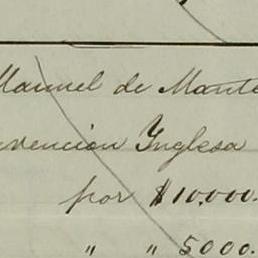 Manuel de Monte
vencion Ynglesa
por $10.000.
" " 5000.